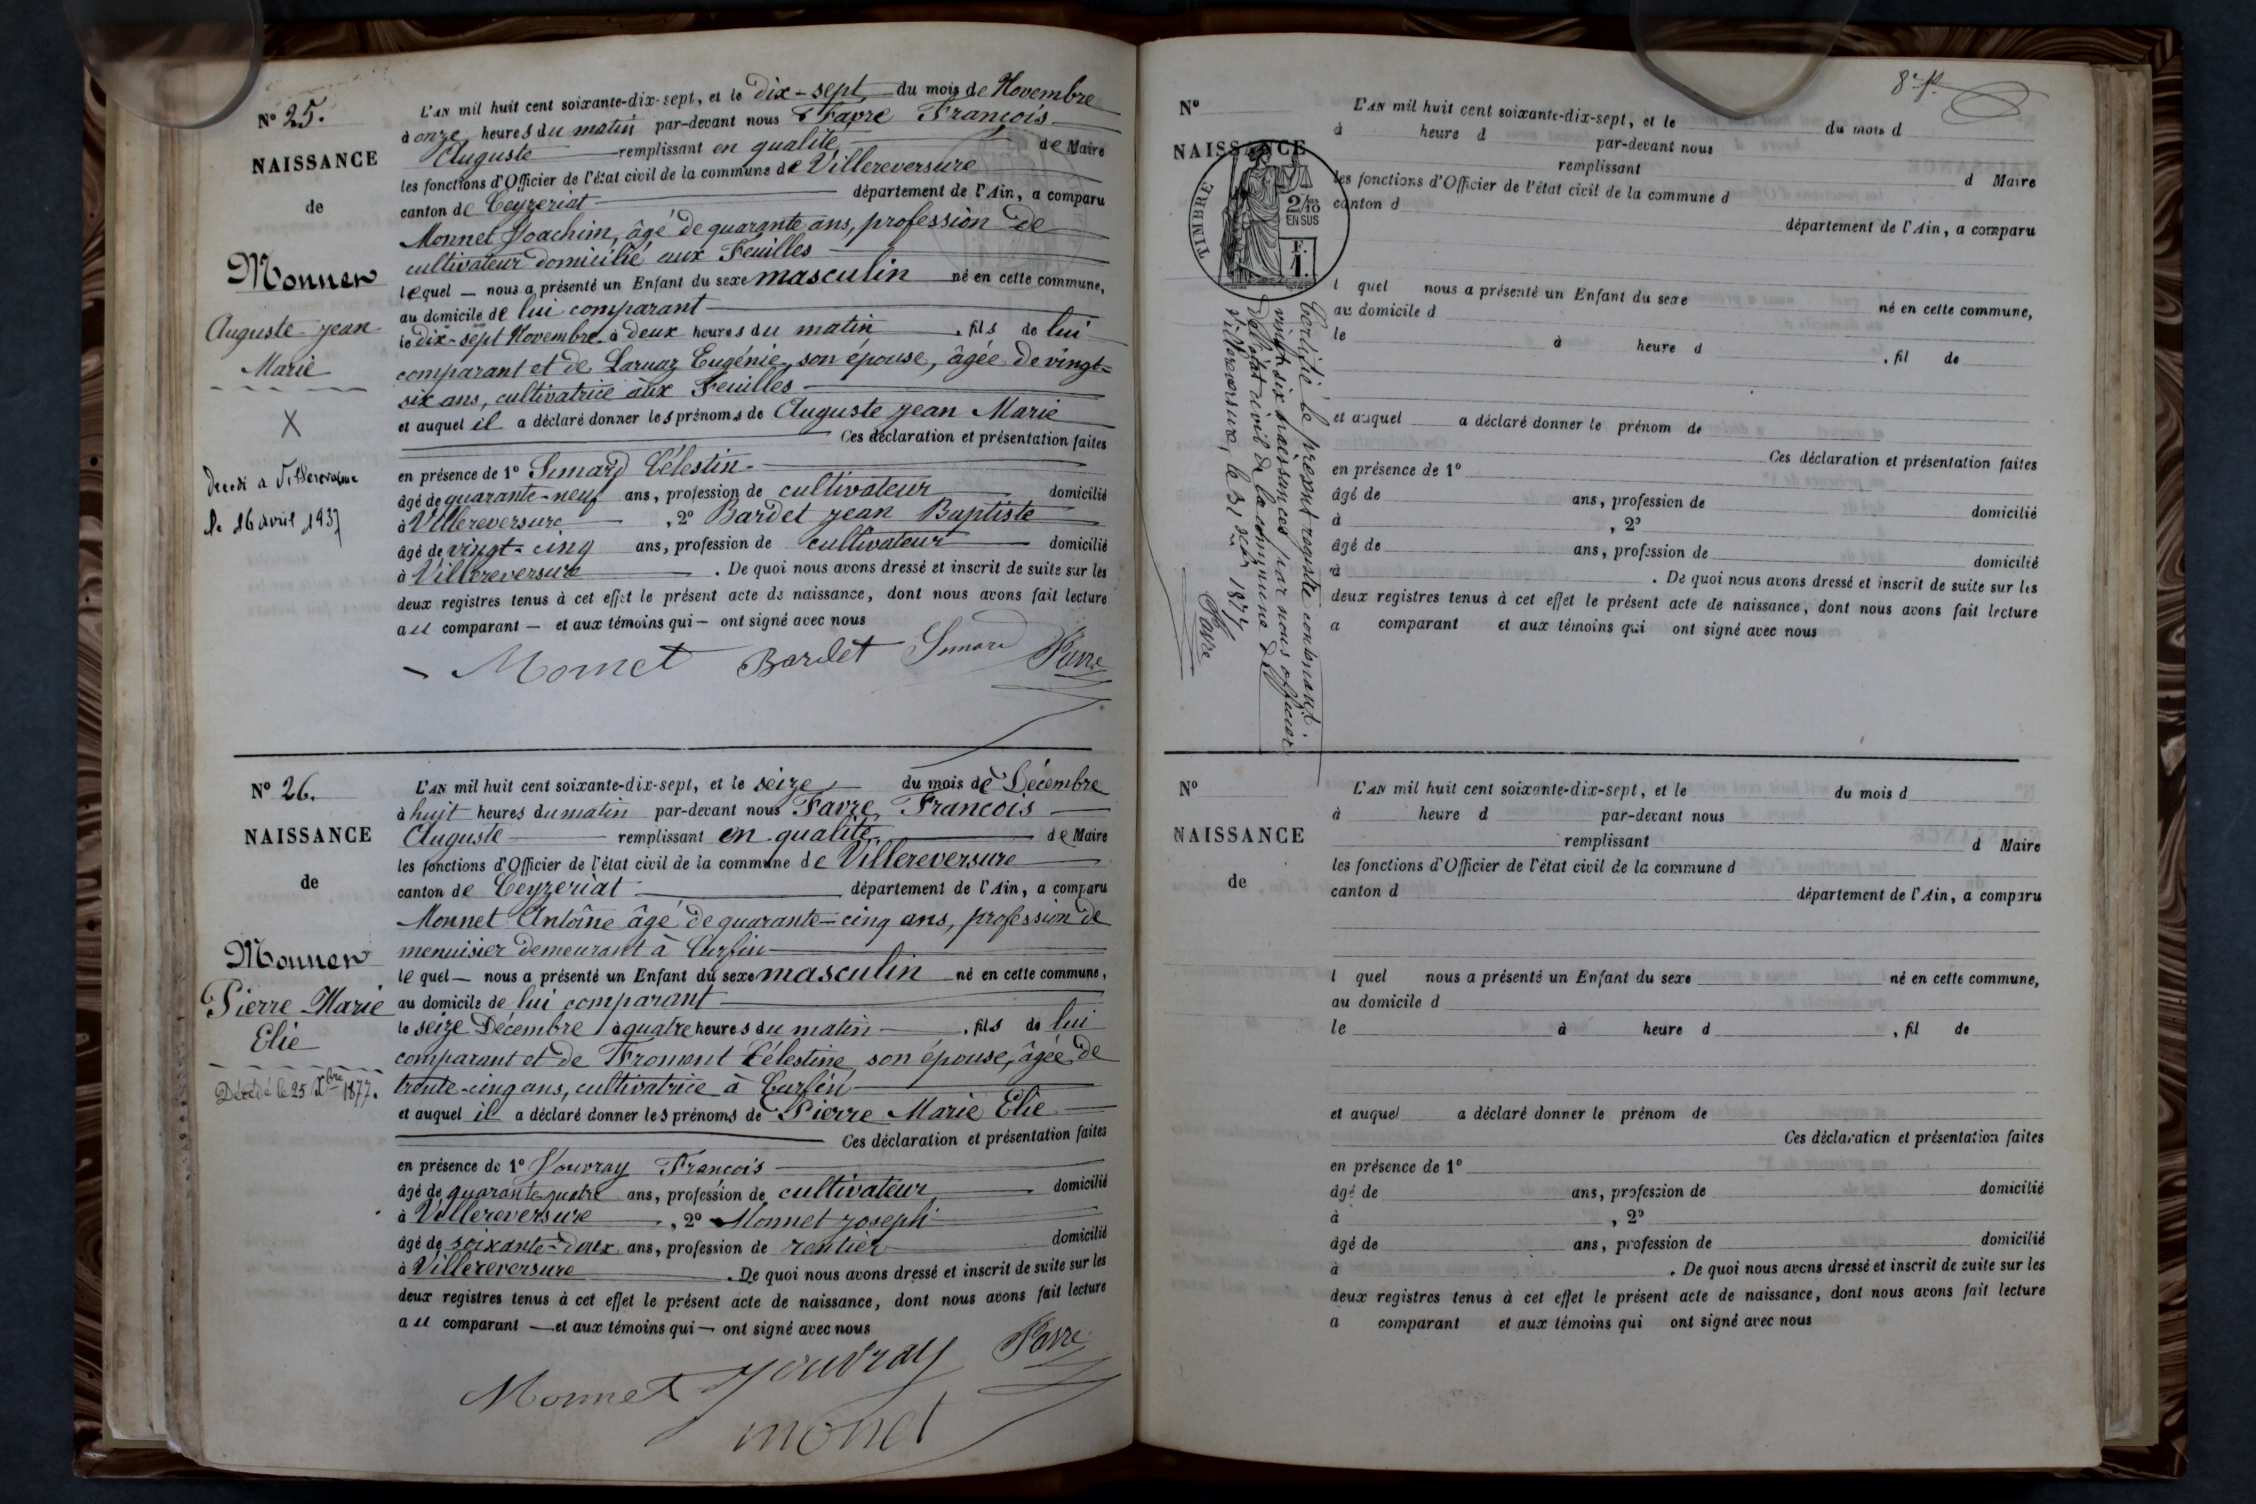 N° 25.
NAISSANCE
de
Monnet
Auguste Jean
Marie
X
Décédé à Villereversure
le 16 avril 1937
L'AN mil huit cent soixante-dix-sept, et le dix-sept du mois de Novembre
à onze heures du matin par-devant nous Favre François
Auguste remplissant en qualité de Maire
les fonctions d'Officier de l'état civil de la commune de Villereversure
canton de Ceyzeriat département de l'Ain, a comparu
Monnet Joachim, âgé de quarante ans, profession de
cultivateur domicilié aux Feuilles
lequel — nous a présenté un Enfant du sexe masculin né en cette commune,
au domicile de lui comparant
le dix-sept Novembre à deux heures du matin, fils de lui
comparant et de Laruaz Eugénie, son épouse, âgée de vingt-
six ans, cultivatrice aux Feuilles
et auquel il a déclaré donner les prénoms de Auguste Jean Marie
Ces déclaration et présentation faites
en présence de 1° Simard Célestin
âgé de quarante-neuf ans, profession de cultivateur domicilié
à Villereversure, 2° Bardet Jean Baptiste
âgé de vingt-cinq ans, profession de cultivateur domicilié
à Villereversure. De quoi nous avons dressé et inscrit de suite sur les
deux registres tenus à cet effet le présent acte de naissance, dont nous avons fait lecture
au comparant — et aux témoins qui — ont signé avec nous
Monnet Bardet Simard Favre
N° 26.
NAISSANCE
de
Monnet
Pierre Marie
Elie
Décédé le 25 Xbre 1877.
L'AN mil huit cent soixante-dix-sept, et le seize du mois de Décembre
à huit heures du matin par-devant nous Favre François
Auguste remplissant en qualité de Maire
les fonctions d'Officier de l'état civil de la commune de Villereversure
canton de Ceyzeriat département de l'Ain, a comparu
Monnet Antoine âgé de quarante-cinq ans, profession de
menuisier demeurant à Curfin
lequel — nous a présenté un Enfant du sexe masculin né en cette commune,
au domicile de lui comparant
le seize Décembre à quatre heures du matin, fils de lui
comparant et de Froment Célestine, son épouse, âgée de
trente-cinq ans, cultivatrice à Curfin
et auquel il a déclaré donner les prénoms de Pierre Marie Elie
Ces déclaration et présentation faites
en présence de 1° Jouvray François
âgé de quarante-quatre ans, profession de cultivateur domicilié
à Villereversure, 2° Monnet Joseph
âgé de soixante-deux ans, profession de rentier domicilié
à Villereversure. De quoi nous avons dressé et inscrit de suite sur les
deux registres tenus à cet effet le présent acte de naissance, dont nous avons fait lecture
au comparant — et aux témoins qui — ont signé avec nous
Monnet Jouvray Favre
monet
8e f.
N°
NAISSANCE
TIMBRE
2/10
EN SUS
F.
1.
Certifié le présent registre contenant
vingt six naissances par nous officier
de l'état civil de la commune de
Villereversure, le 31 Xbre 1877
Favre
L'AN mil huit cent soixante-dix-sept, et le du mois d
à heure d par-devant nous
remplissant d Maire
les fonctions d'Officier de l'état civil de la commune d
canton d département de l'Ain, a comparu
l quel nous a présenté un Enfant du sexe né en cette commune,
au domicile d
le à heure d , fil de
et auquel a déclaré donner le prénom de
Ces déclaration et présentation faites
en présence de 1°
âgé de ans, profession de domicilié
à , 2°
âgé de ans, profession de domicilié
à . De quoi nous avons dressé et inscrit de suite sur les
deux registres tenus à cet effet le présent acte de naissance, dont nous avons fait lecture
a comparant et aux témoins qui ont signé avec nous
N°
NAISSANCE
de
L'AN mil huit cent soixante-dix-sept, et le du mois d
à heure d par-devant nous
remplissant d Maire
les fonctions d'Officier de l'état civil de la commune d
canton d département de l'Ain, a comparu
l quel nous a présenté un Enfant du sexe né en cette commune,
au domicile d
le à heure d , fil de
et auquel a déclaré donner le prénom de
Ces déclaration et présentation faites
en présence de 1°
âgé de ans, profession de domicilié
à , 2°
âgé de ans, profession de domicilié
à . De quoi nous avons dressé et inscrit de suite sur les
deux registres tenus à cet effet le présent acte de naissance, dont nous avons fait lecture
a comparant et aux témoins qui ont signé avec nous